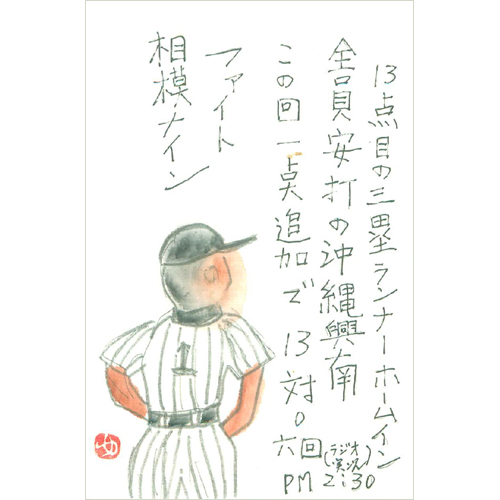 13点目の三塁ランナーホームイン
全員安打の沖縄興南
この回一点追加で13対0
六回
(ラジオ実況)
PM2:30
ファイト
相模ナイン
1
ゆ